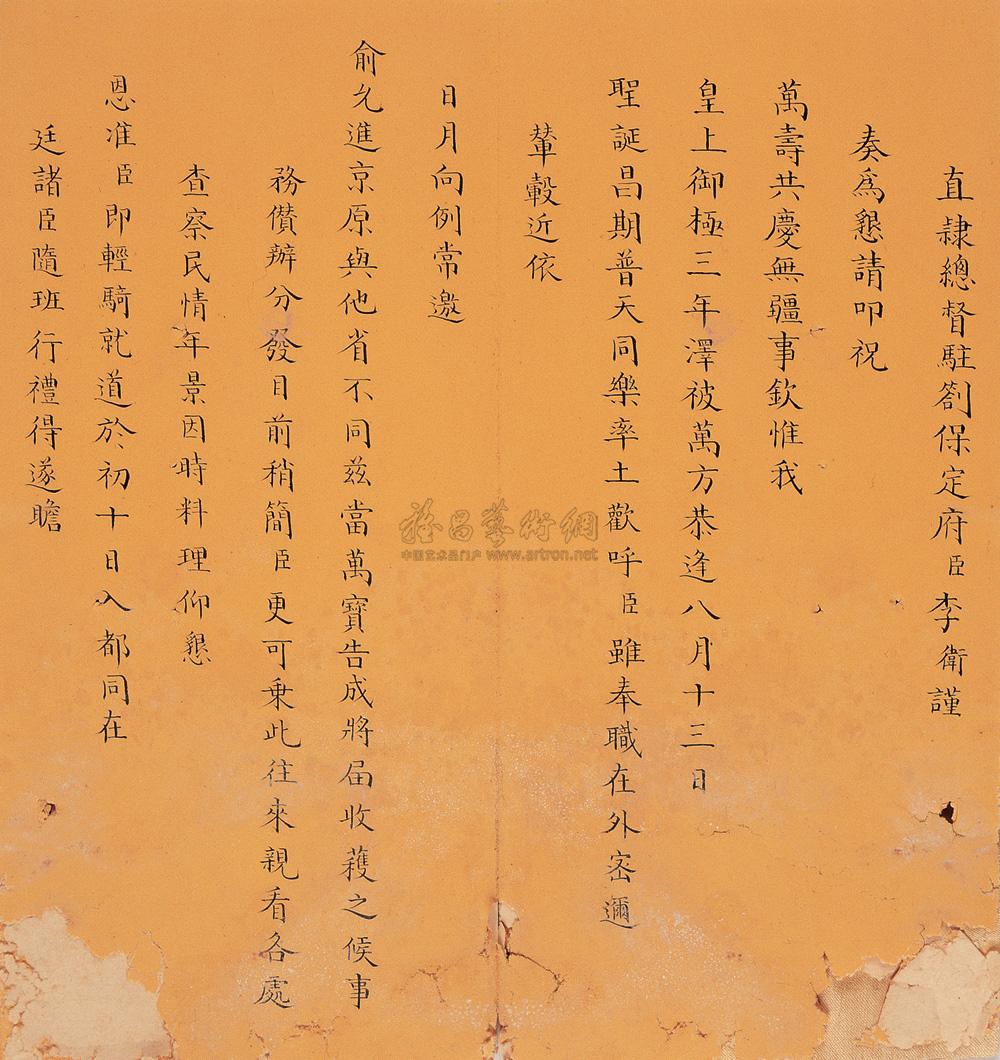 直隸總督駐劄保定府臣李衛謹
奏爲懇請叩祝
萬壽共慶無疆事欽惟我
皇上御極三年澤被萬方恭逢八月十三日
聖誕昌期普天同樂率土歡呼臣雖奉職在外密邇
輦轂近依
日月向例常邀
俞允進京原與他省不同茲當萬寶告成將屆收穫之候事
務儹辦分發目前稍簡臣更可乘此往來親看各處
查察民情年景因時料理仰懇
恩准臣即輕騎就道於初十日入都同在
廷諸臣隨班行禮得遂瞻
雅昌藝術網
中国艺术品门户 www.artron.net